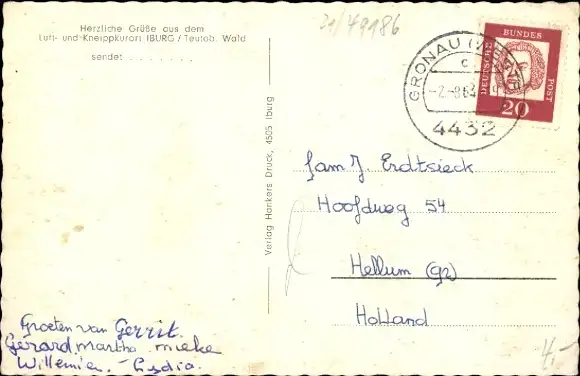 Herzliche Grüße aus dem
Luft- und Kneippkurort IBURG / Teutob. Wald
sendet . . . . . . .
21/49186
GRONAU (
c
-2.-8.63
4432
DEUTSCHE BUNDESPOST
20
Verlag Hankers Druck, 4505 Iburg
fam J. Erdtsieck
Hoofdweg 54
Hellum (gr)
Holland
Groeten van Gerrit.
Gerard, Martha, mieke
Willemien. - Lydia.
4,-